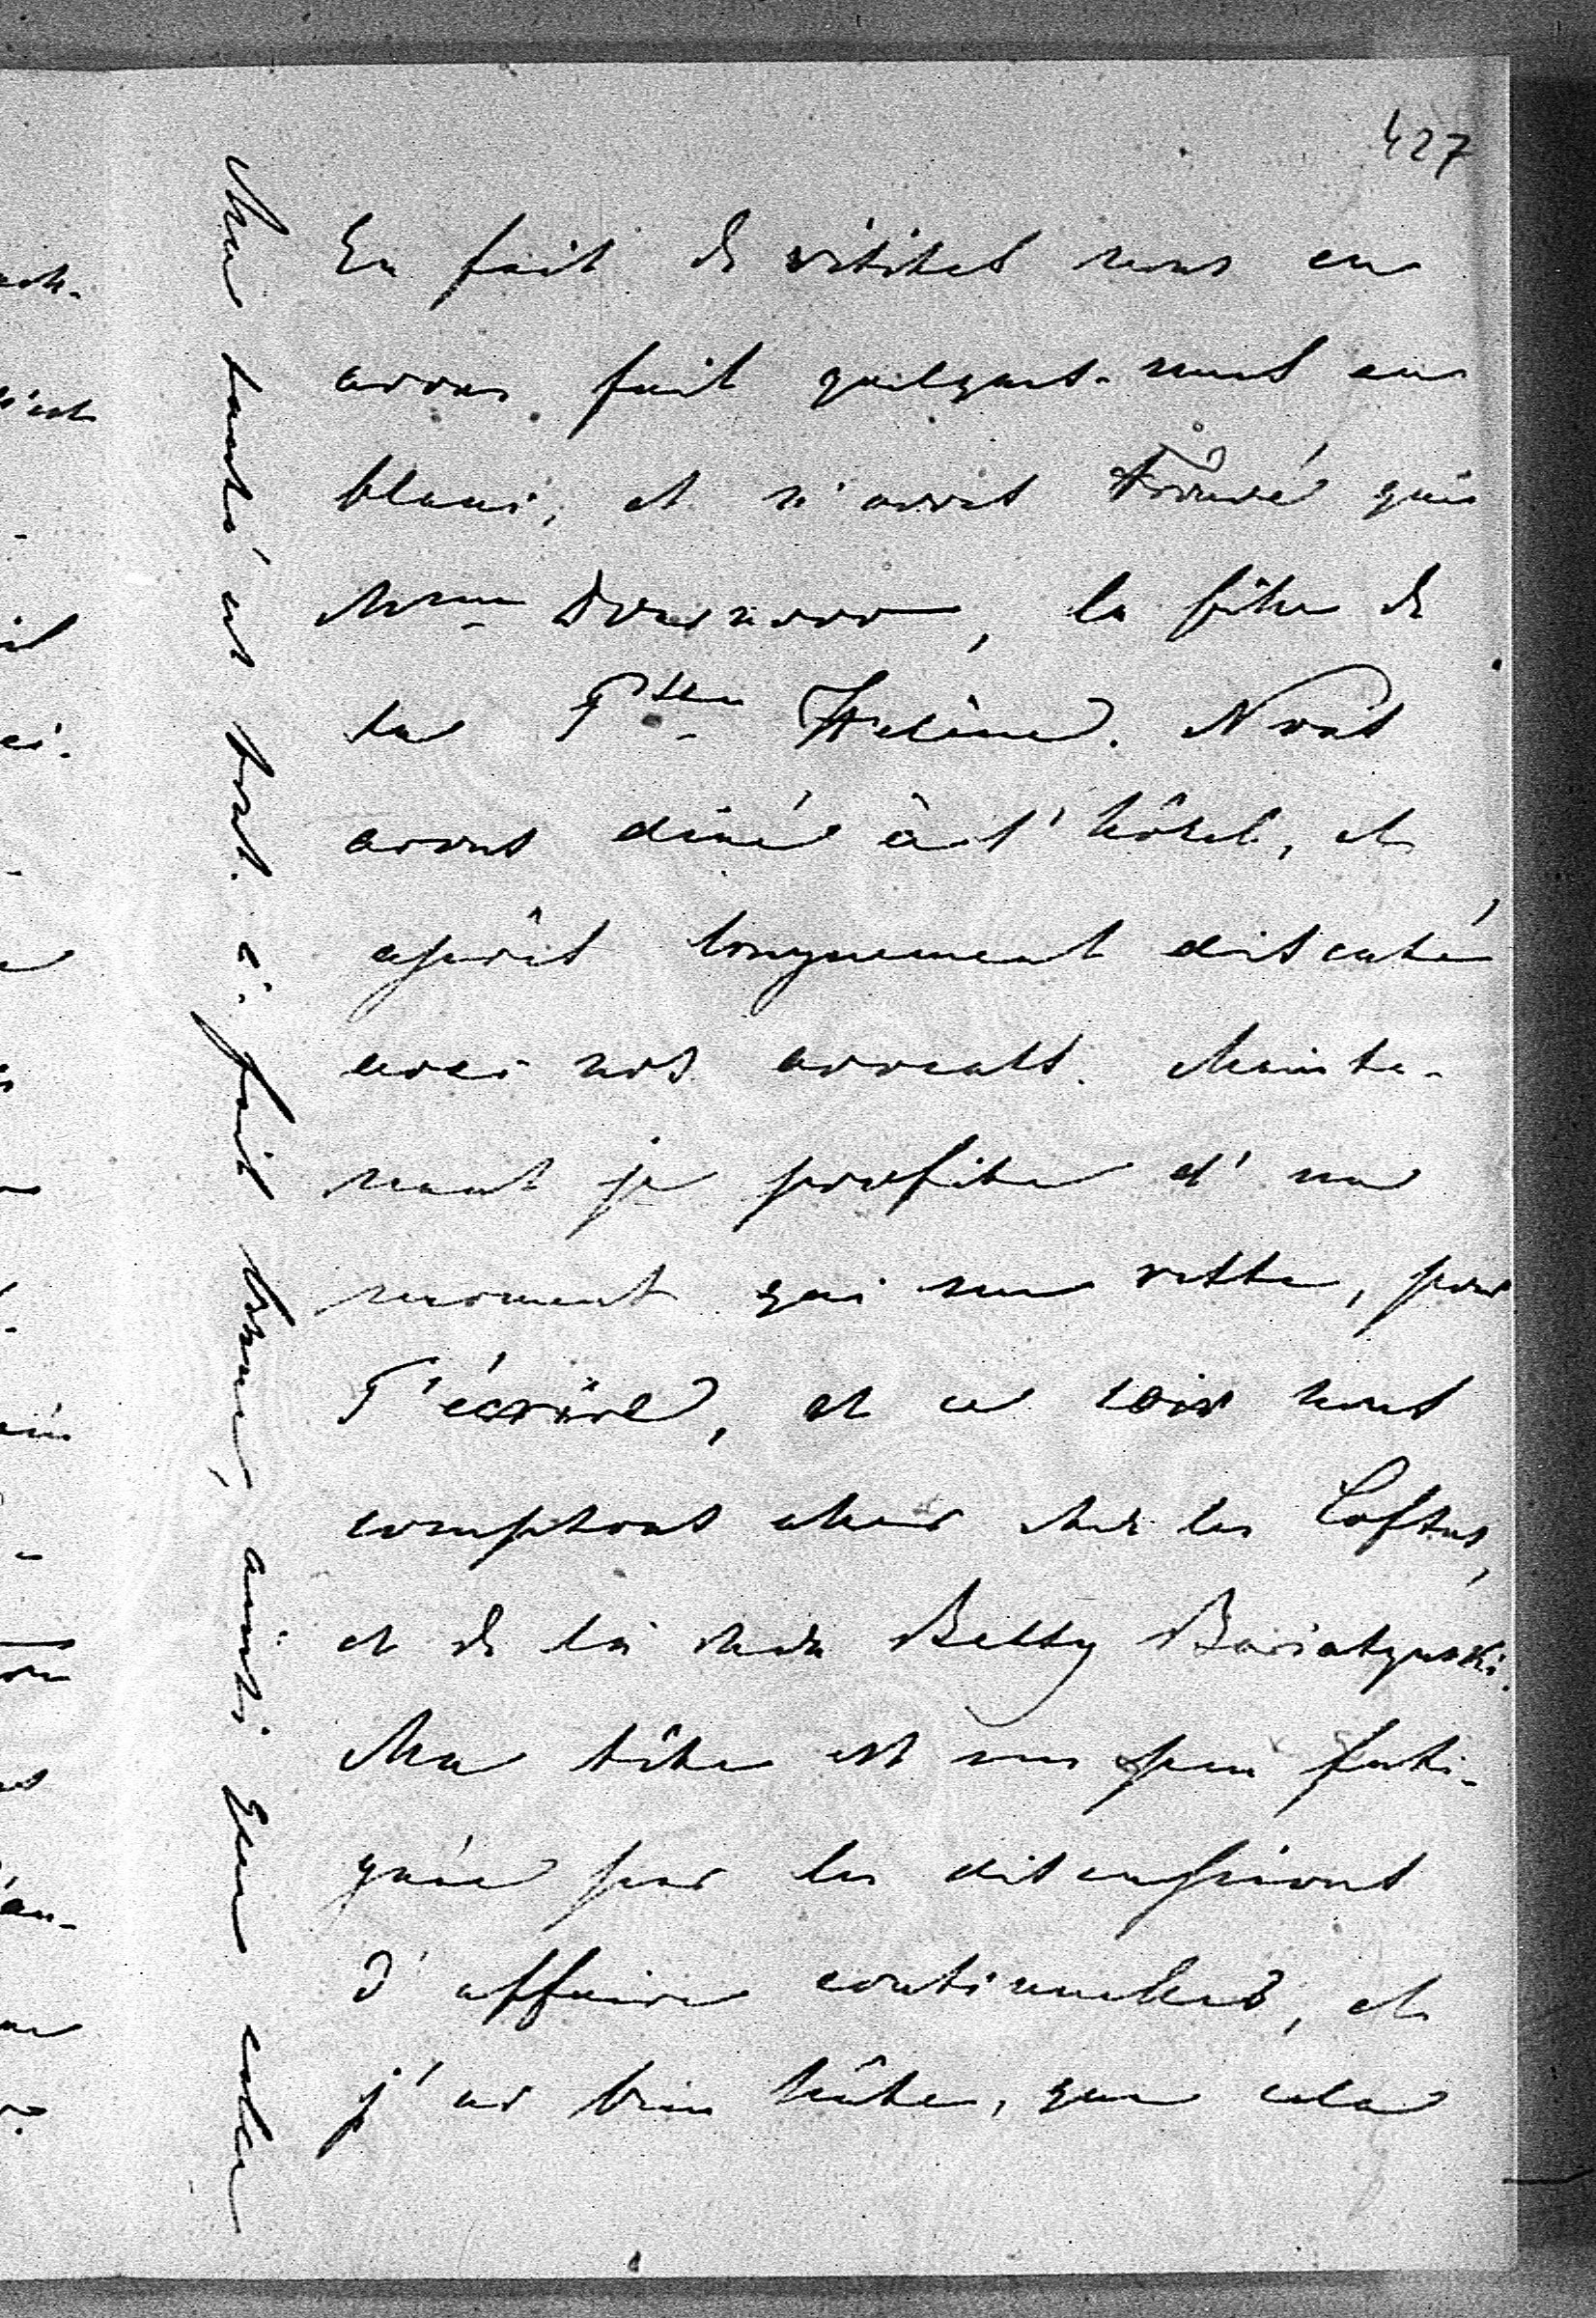 427
En fait de visites nous en
avons fait quelques-unes en
blanc, et n'avons trouvé que
Mme Dournovo, la fille de
la Psse Hélène. Nous
avons dîné à l'hôtel, et
après longuement discuté
avec nos avocats. Mainte-
nant je profite d'un
moment qui me reste, pour
T'écrire, et ce soir nous
comptons aller chez les Loftus,
et de là chez Betty Bariatynski.
Ma tête est un peu fati-
guée par les discussions
d'affaire continuelles, et
j'ai bien hâte, que cela
Ma santé est tout-à-fait bonne, ainsi que celle